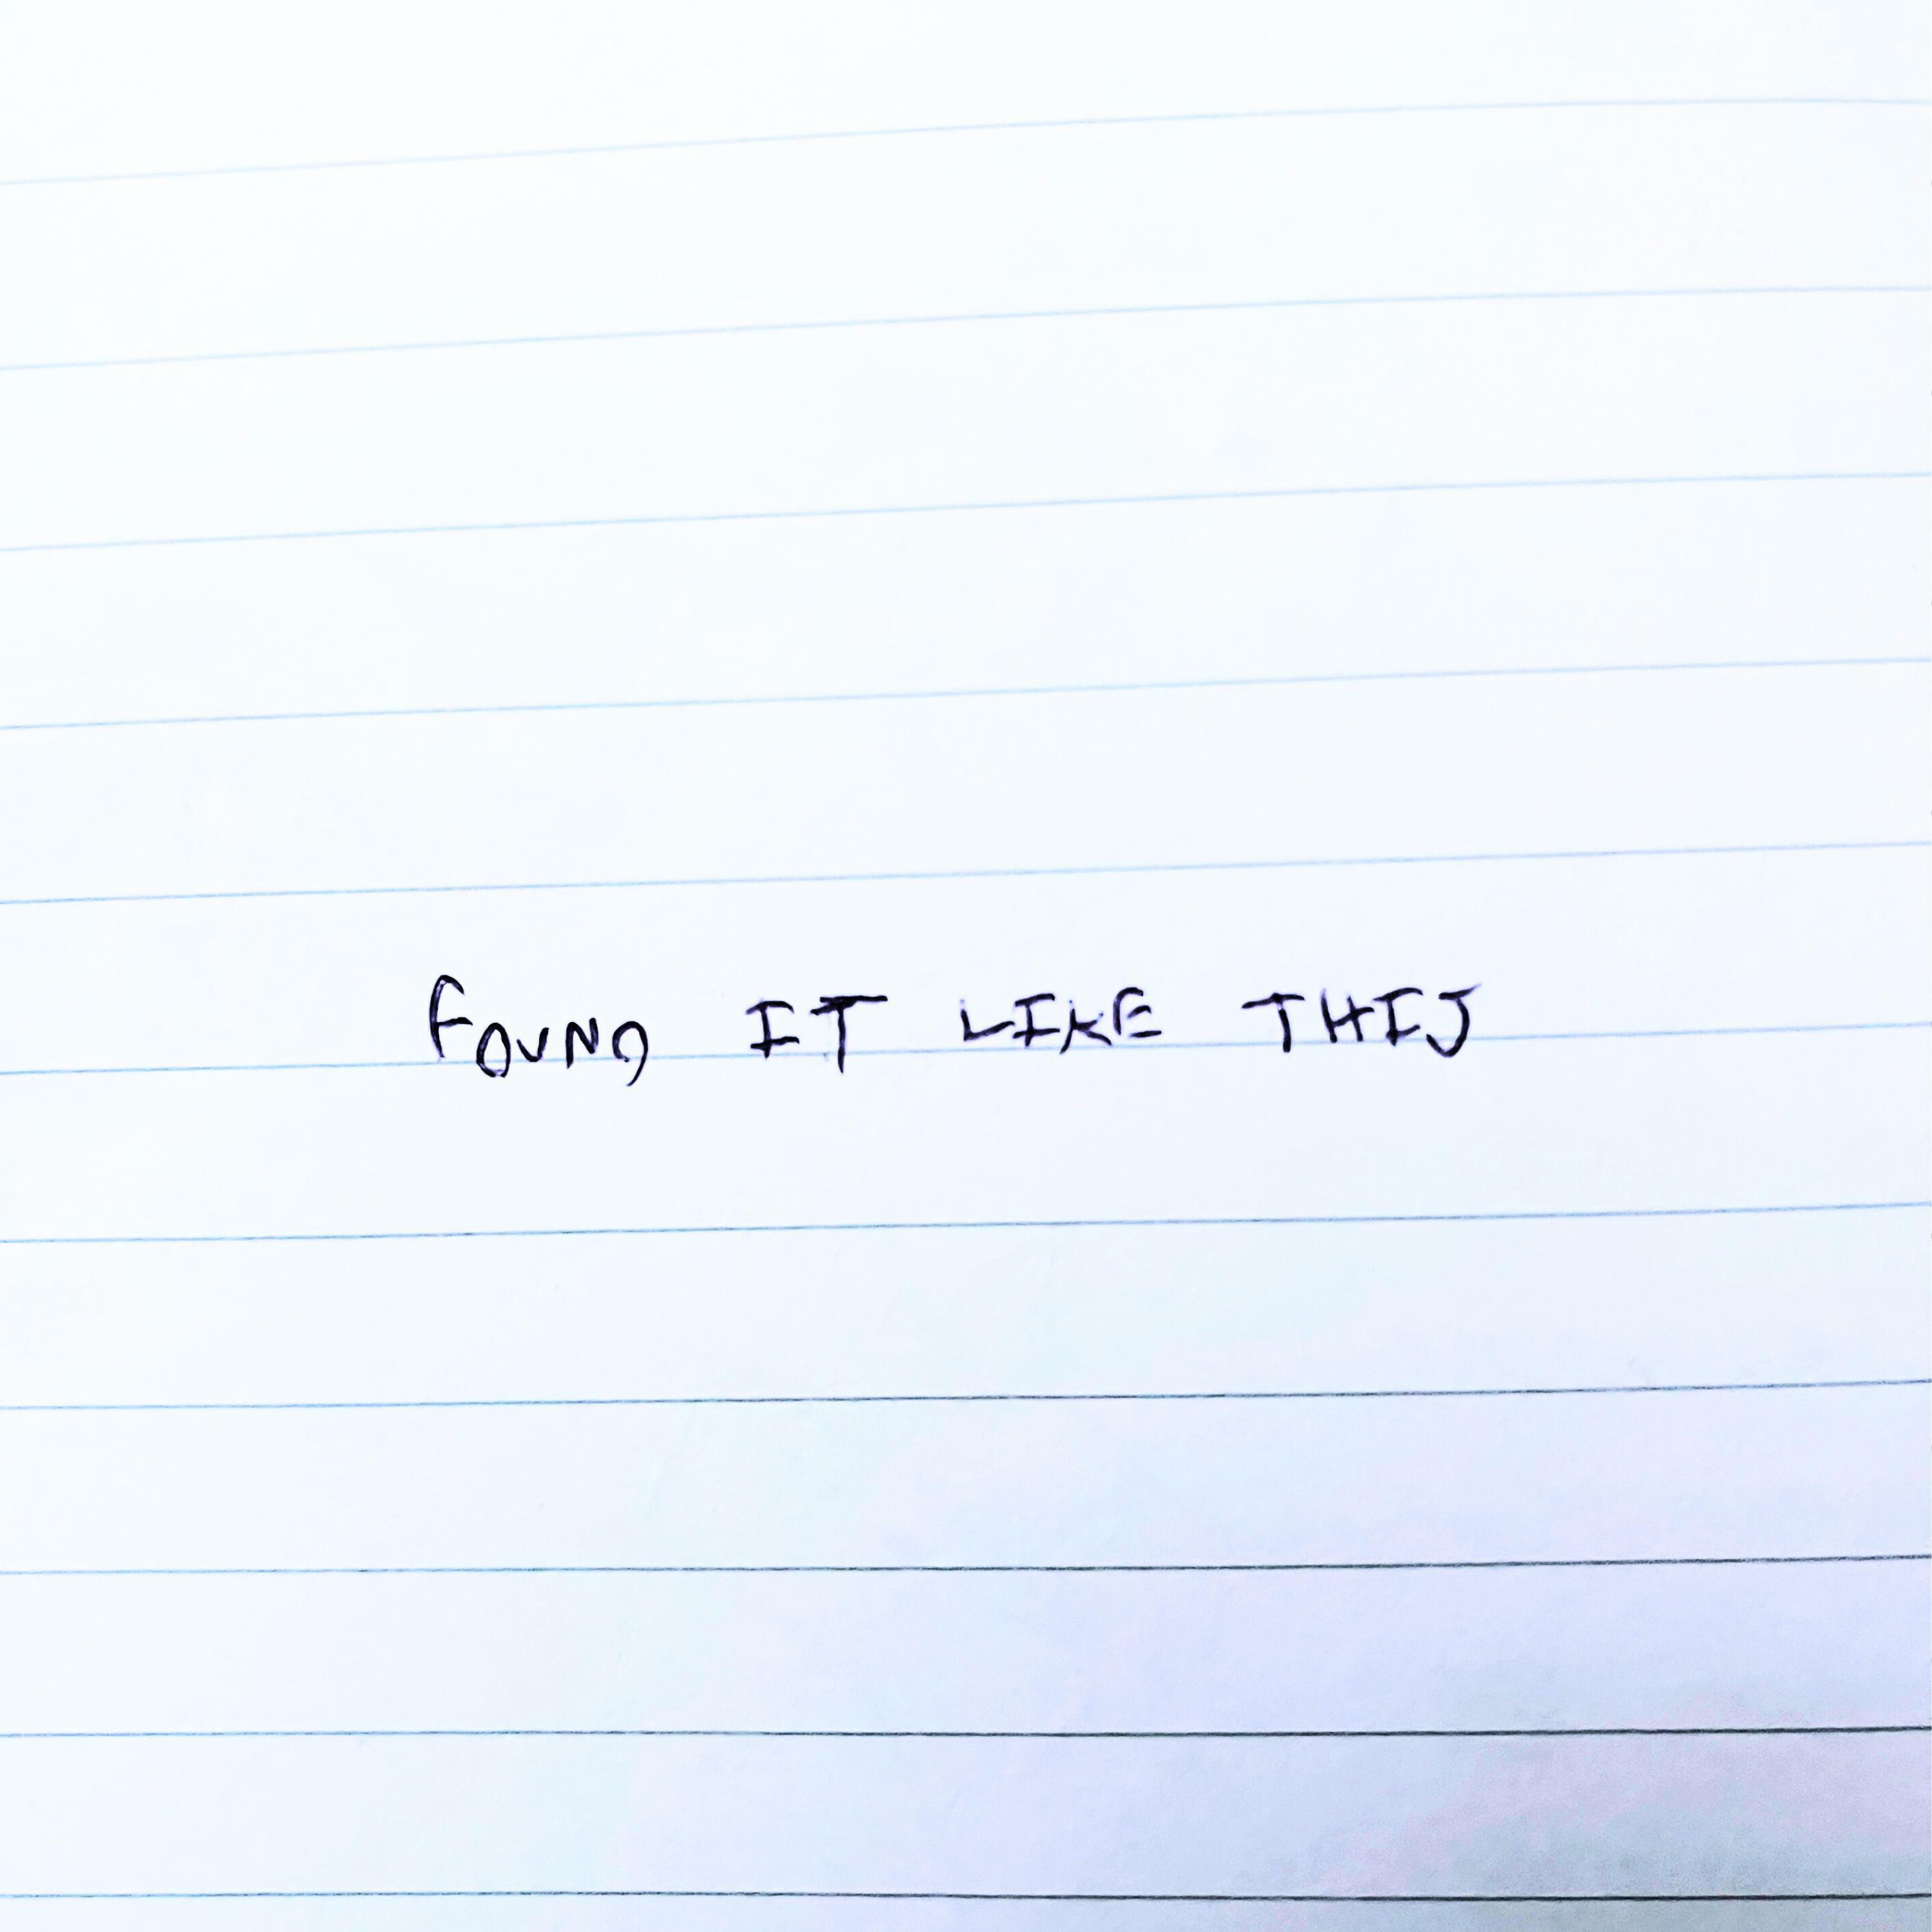 FOUND IT LIKE THIS